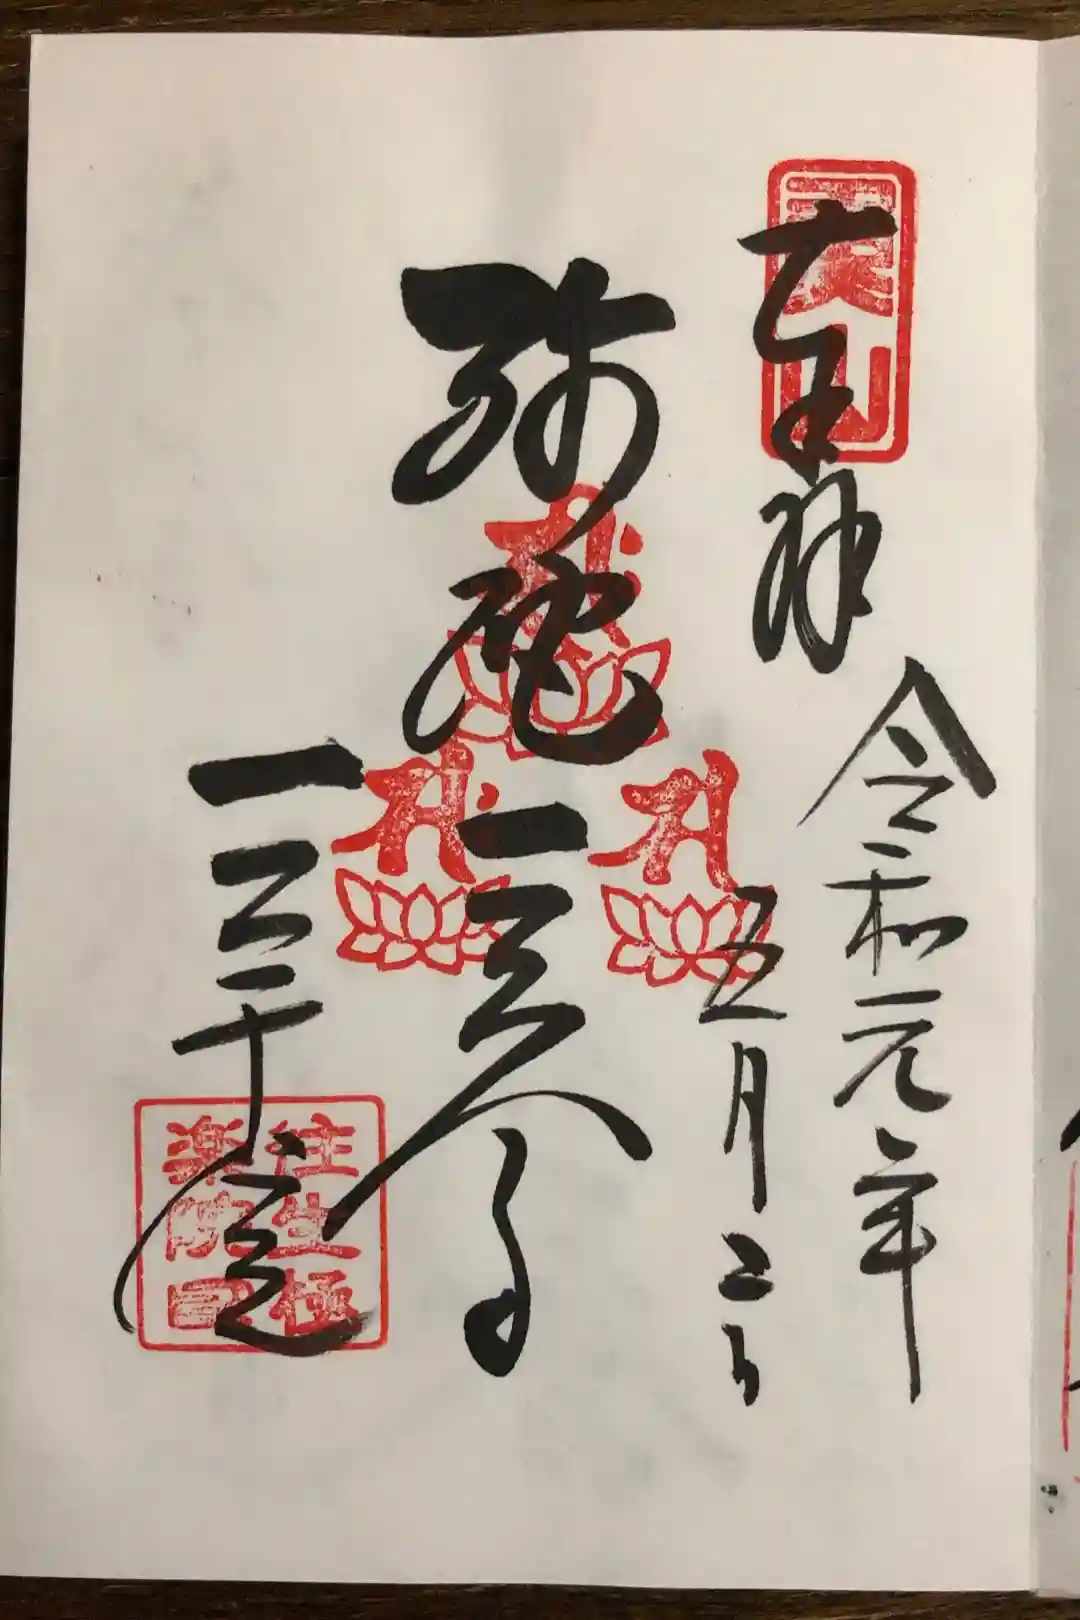 奉拝
令和元年
五月二日
弥陀三尊
三千院
往生極
楽院印